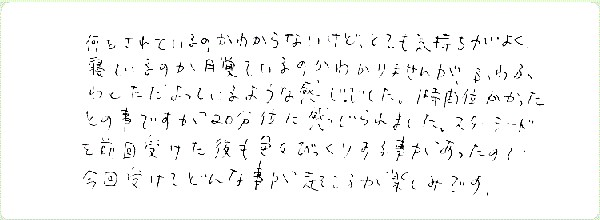 何をされているのかわからないけど、とても気持ちがよく
寝ているのか目覚ているのかわかりませんが、ふわふ
わとただよっているような感じでした。1時間位かかった
との事ですが20分位に感じられました。スターシード
を前回受けた後も色々びっくりする事があったので
今回受けてどんな事が起こるか楽しみです。